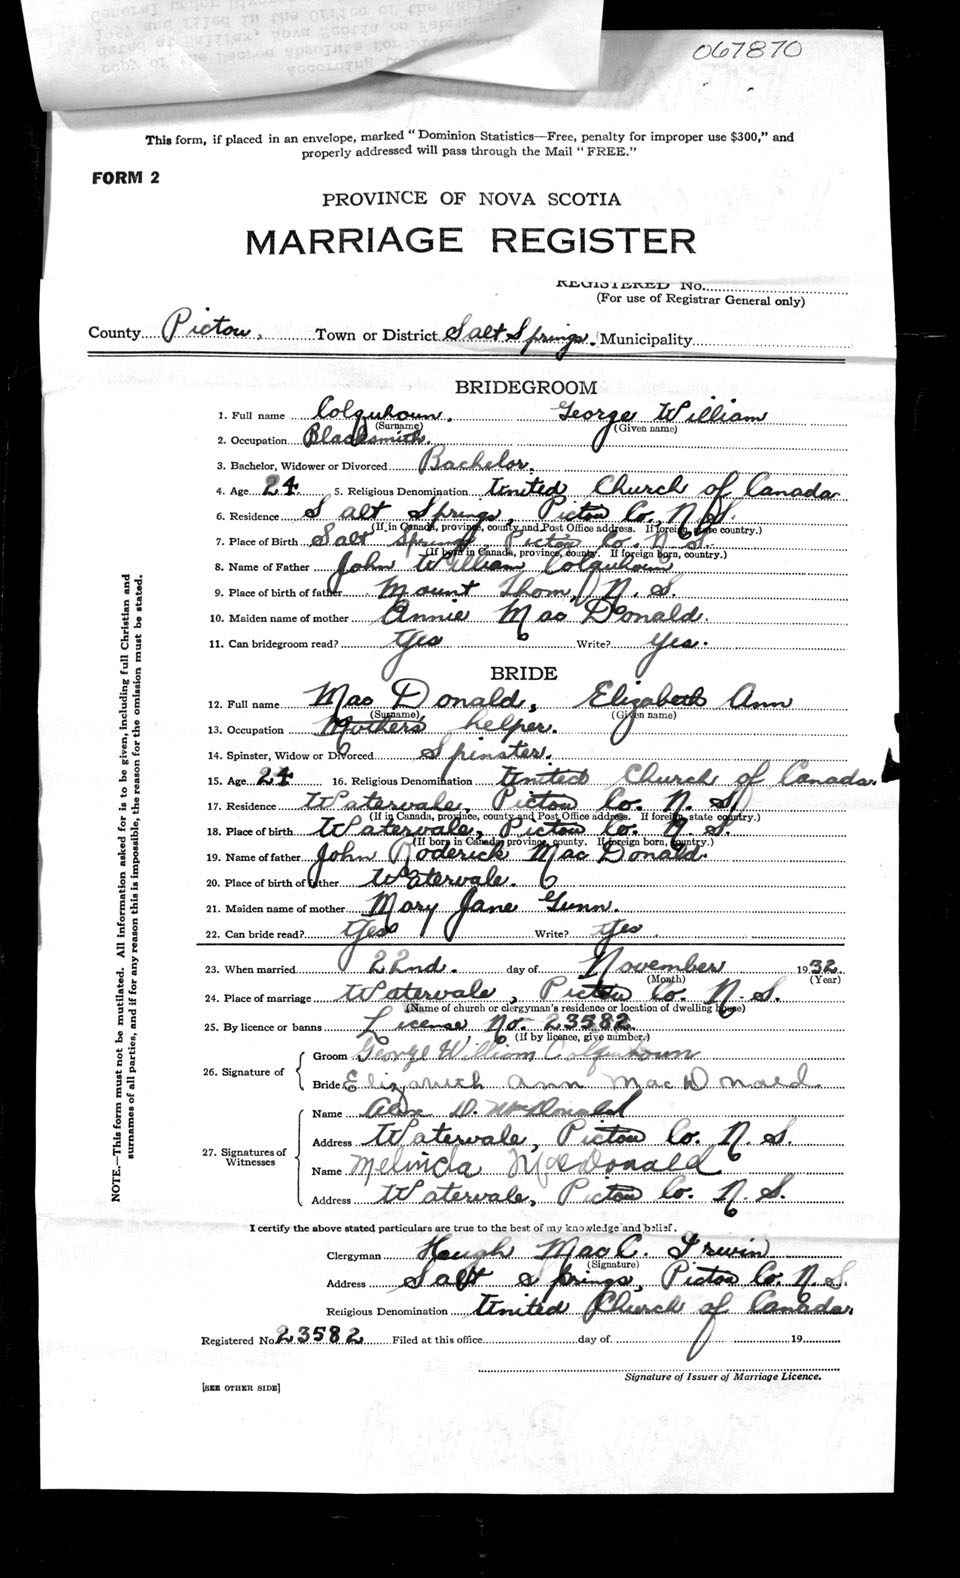 067870
This form, if placed in an envelope, marked "Dominion Statistics—Free, penalty for improper use $300," and
properly addressed will pass through the Mail "FREE."
FORM 2
PROVINCE OF NOVA SCOTIA
MARRIAGE REGISTER
REGISTERED No.
(For use of Registrar General only)
County Pictou, Town or District Salt Springs. Municipality
BRIDEGROOM
1. Full name Colquhoun. George William
(Surname) (Given name)
2. Occupation Blacksmith.
3. Bachelor, Widower or Divorced Bachelor.
4. Age 24. 5. Religious Denomination United Church of Canada
6. Residence Salt Springs, Pictou Co. N.S.
(If in Canada, province, county and Post Office address. If foreign, state country.)
7. Place of Birth Salt Springs, Pictou Co. N.S.
(If born in Canada, province, county. If foreign born, country.)
8. Name of Father John William Colquhoun
9. Place of birth of father Mount Thom, N.S.
10. Maiden name of mother Annie Mac Donald.
11. Can bridegroom read? Yes Write? Yes.
BRIDE
12. Full name Mac Donald, Elizabeth Ann
(Surname) (Given name)
13. Occupation Mothers helper.
14. Spinster, Widow or Divorced Spinster.
15. Age 24 16. Religious Denomination United Church of Canada.
17. Residence Watervale, Pictou Co. N.S.
(If in Canada, province, county and Post Office address. If foreign, state country.)
18. Place of birth Watervale, Pictou Co. N.S.
(If born in Canada, province, county. If foreign born, country.)
19. Name of father John Roderick Mac Donald.
20. Place of birth of father Watervale.
21. Maiden name of mother Mary Jane Gunn.
22. Can bride read? Yes Write? Yes
23. When married 22nd. day of November 1932.
(Month) (Year)
24. Place of marriage Watervale, Pictou Co. N.S.
(Name of church or clergyman's residence or location of dwelling house)
25. By licence or banns License No. 23582
(If by licence, give number.)
26. Signature of
Groom George William Colquhoun
Bride Elizabeth Ann MacDonald
27. Signatures of Witnesses
Name D. McDonald
Address Watervale, Pictou Co. N.S.
Name Melinda MacDonald
Address Watervale, Pictou Co. N.S.
I certify the above stated particulars are true to the best of my knowledge and belief.
Clergyman Hough MacC. Irwin
(Signature)
Address Salt Springs, Pictou Co. N.S.
Religious Denomination United Church of Canada.
Registered No. 23582 Filed at this office day of 19
Signature of Issuer of Marriage Licence.
[SEE OTHER SIDE]
NOTE.—This form must not be mutilated. All Information asked for is to be given, including full Christian and
surnames of all parties, and if for any reason this is impossible, the reason for the omission must be stated.